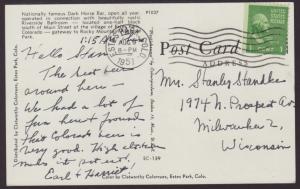 Nationally famous Dark Horse Bar, open all year, P1037
operated in connection with beautifully rustic
Riverside Ballroom — located one-half block
south of Main Street at the village of Estes Park,
Colorado — gateway to Rocky Mountain National
Park.
AUG 9
8 - PM
1951
Post Card
ADDRESS
Hello Stan
The best beer
around here —
We had a lot of
fun here & found
the beer here is
very good. High altitude
makes it potent.
Earl & Harriet,
Mr. Stanley Standke
1974 N. Prospect Av.
Milwaukee 2,
Wisconsin
SC-139
Distributed by Clatworthy Colorvues, Estes Park, Colo.
Color by Clatworthy Colorvues, Estes Park, Colo.